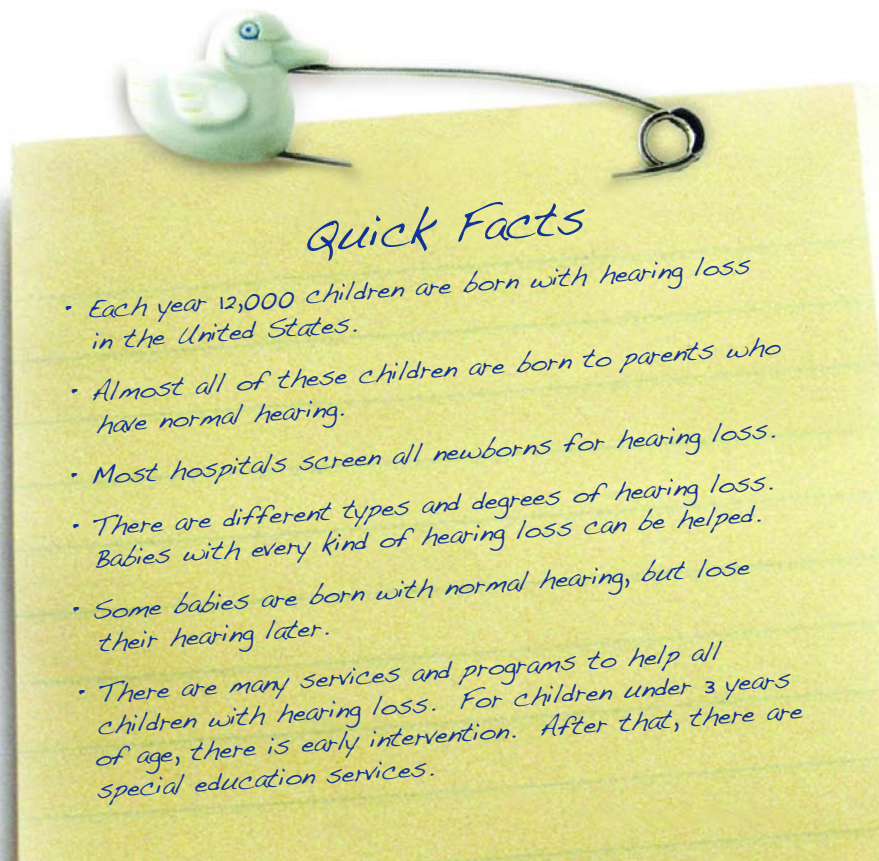 Quick Facts
• Each year 12,000 children are born with hearing loss
in the United States.
• Almost all of these children are born to parents who
have normal hearing.
• Most hospitals screen all newborns for hearing loss.
• There are different types and degrees of hearing loss.
Babies with every kind of hearing loss can be helped.
• Some babies are born with normal hearing, but lose
their hearing later.
• There are many services and programs to help all
children with hearing loss.  For children under 3 years
of age, there is early intervention.  After that, there are
special education services.